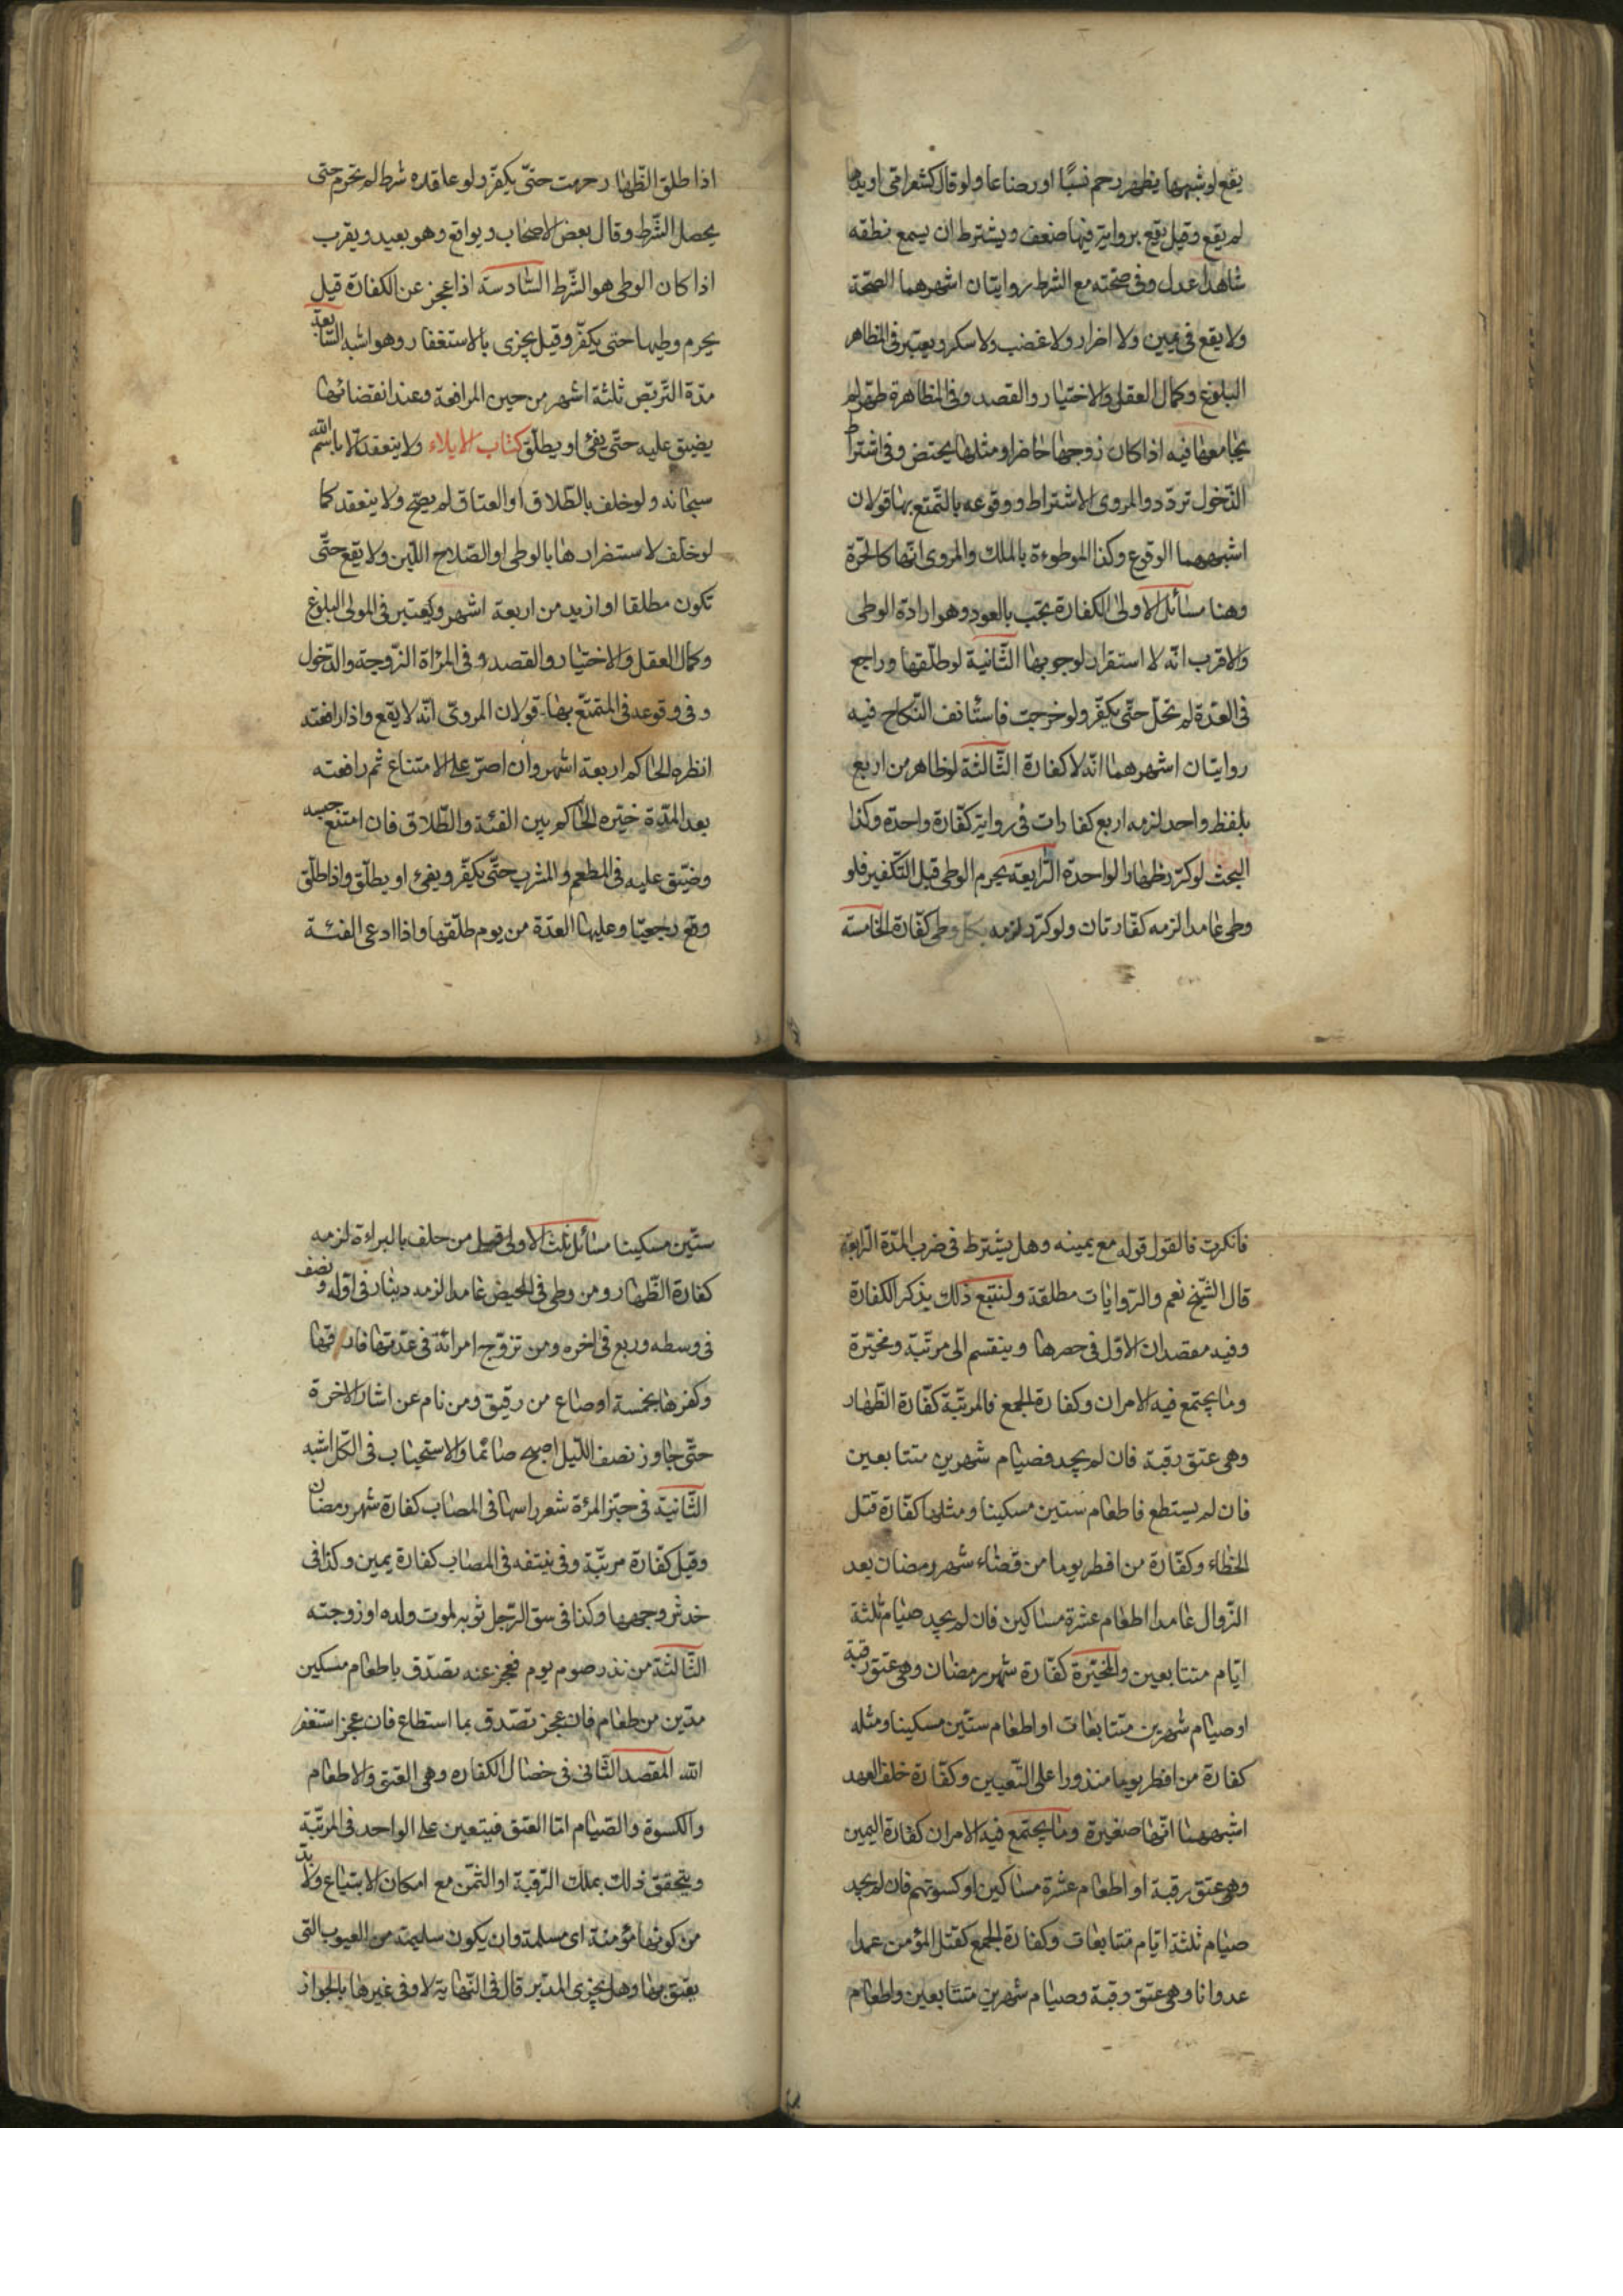 يقع لو شبهها بظهر رحم نسبًا او رضاعا ولو قال كشعر امى او يدها
لم يقع وقيل يقع برواية فيها ضعف ويشترط ان يسمع نطقه
شاهدا عدل وفى صحته مع الشرط روايتان اشهرهما الصحة
ولا يقع فى يمين ولا اضرار ولا غضب ولا سكر ويعتبر فى المظاهر
البلوغ وكمال العقل والاختيار والقصد وفى المظاهرة طهر لم
يجامعها فيه اذا كان زوجها حاضرا ومثلها يحيض وفى اشتراط
الدّخول تردّد والمروى الاشتراط ووقوعه بالتّمتع بها قولان
اشبههما الوقوع وكذا الموطوءة بالملك والمروى انّها كالحرّة
وهنا مسائل الاولى الكفارة يجب بالعود وهو ارادة الوطى
والاقرب انّه لا استقرار لوجوبها الثّانية لو طلّقها وراجع
فى العدّة لم تحلّ حتّى يكفّر ولو خرجت فاستأنف النّكاح فيه
روايتان اشهرهما انّه لا كفارة الثّالثة لو ظاهر من اربع
بلفظ واحد لزمه اربع كفارات فى رواية كفّارة واحدة وكذا
البحث لو كرّر ظهار الواحدة الرّابعة يحرم الوطى قبل التّكفير فلو
وطى عامدا لزمه كفّارتان ولو كرّر لزمه بكلّ وطى كفّارة الخامسة
اذا طلق الظّهار حرمت حتّى يكفّر ولو علقه شرط لم تحرم حتى
يحصل الشّرط وقال بعض الاصحاب ويواقع وهو بعيد ويقرب
اذا كان الوطى هو الشّرط السّادسة اذا عجز عن الكفارة قيل
يحرم وطيها حتى يكفّر وقيل يجزى بالاستغفار وهو اشبه السّابعة
مدّة التّربّص ثلثة اشهر من حين المرافعة وعند انقضائها
يضيق عليه حتّى يفئ او يطلّق كتاب الايلاء ولا ينعقد الّا باسم الله
سبحانه ولو حلف بالطّلاق او العتاق لم يصحّ ولا ينعقد كما
لو حلف لاستضرارها بالوطى او الصّلاح اللّبن ولا يقع حتّى
تكون مطلقا او ازيد من اربعة اشهر ويعتبر فى المولى البلوغ
وكمال العقل والاختيار والقصد و فى المرأة الزّوجية والدّخول
و فى وقوعه فى المتمتّع بها قولان المروىّ انّه لا يقع واذا رافعته
انظره الحاكم اربعة اشهر وان اصرّ على الامتناع ثم رافعته
بعد المدّة خيّره الحاكم بين الفئة والطّلاق فان امتنع حبسه
وضيّق عليه فى المطعم والمشرب حتّى يكفّر ويفئ او يطلّق واذا طلّق
وقع رجعيّا وعليها العدّة من يوم طلّقها واذا ادعى الفئة
فانكرت فالقول قوله مع يمينه وهل يشترط فى ضرب المدّة الرّابعة
قال الشّيخ نعم والرّوايات مطلقة ولنتبع ذلك بذكر الكفارة
وفيه مقصدان الاوّل فى حصرها وينقسم الى مرتّبة ومخيّرة
وما يجتمع فيه الامران وكفارة الجمع فالمرتّبة كفّارة الظّهار
وهى عتق رقبة فان لم يجد فصيام شهرين متتابعين
فان لم يستطع فاطعام ستين مسكينا ومثلها كفّارة قتل
الخطاء وكفّارة من افطر يوما من قضاء شهر رمضان بعد
الزّوال عامدا اطعام عشرة مساكين فان لم يجد صيام ثلثة
ايّام متتابعين والمخيّرة كفّارة شهر رمضان وهى عتق رقبة
او صيام شهرين متتابعات او اطعام ستّين مسكينا ومثله
كفارة من افطر يوما منذورا على التّعيين وكفّارة خلف العهد
اشبههما انّها صغيرة وما يجتمع فيه الامران كفارة اليمين
وهى عتق رقبة او اطعام عشرة مساكين او كسوتهم فان لم يجد
صيام ثلثة ايّام متتابعات وكفارة الجمع كقتل المؤمن عمدا
عدوانا وهى عتق رقبة وصيام شهرين متتابعين واطعام
ستّين مسكينا مسائل ثلث الاولى قيل من حلف بالبراءة لزمه
كفارة الظّهار ومن وطى فى الحيض عامدا لزمه دينار فى اوّله ونصف
فى وسطه وربع فى اخره ومن تزوّج امرائة فى عدّتها فارقها
وكفر بها بخمسة اوصاع من رقيق ومن نام عن اشاء الاخرة
حتّى جاوز نصف اللّيل اصبح صائما والاستحباب فى الكلّ اشبه
الثّانية فى جزّ المرئة شعر راسها فى المصاب كفارة شهر رمضان
وقيل كفّارة مرتّبة وفى نيتفه فى المصاب كفارة يمين وكذا فى
خدش وجهها وكذا فى سق الرّجل ثوبه لموت ولده او زوجته
الثّالثة من نذر صوم يوم فعجز عنه تصّدق باطعام مسكين
مدّين من طعام فان عجز تصّدق بما استطاع فان عجز استغفر
الله المقصد الثّانى فى خصال الكفاره وهى العتق والاطعام
والكسوة والصّيام امّا العتق فيتعين على الواحد فى المرتّبة
ويتحقق ذلك بملك الرّقبة او الثّمن مع امكان الابتياع ولا بدّ
من كونها مؤمنة اى مسلمة وان يكون سليمة من العيوب التى
يعتق بها وهل يجزى المدبّر قال فى النّهاية لا وفى غيرها بالجواز